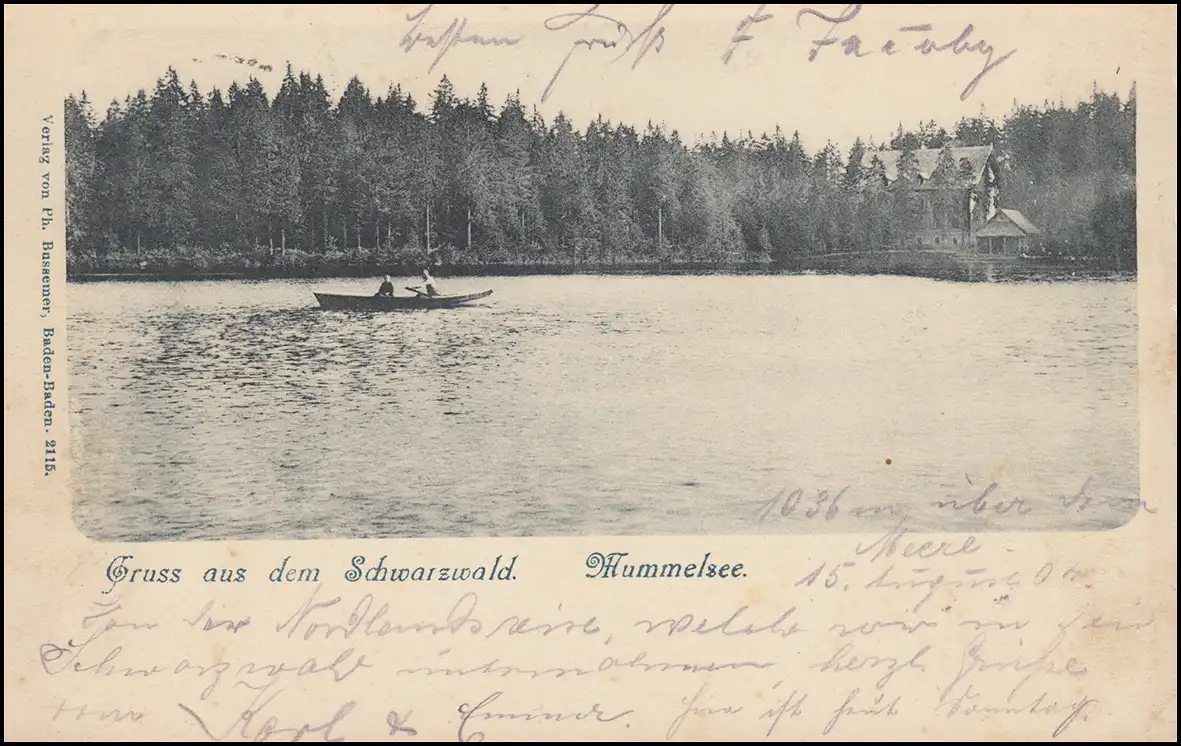 besten Gruss F Jacoby
Verlag von Ph. Bussemer, Baden-Baden. 2115.
1036 m über dem
Meere
15. August 04.
Gruss aus dem Schwarzwald. Mummelsee.
Von der welche wir in den
Schwarzwald unternahmen, herzl Grüße
vom Karl & Emma. hier ist heut Sonntag.